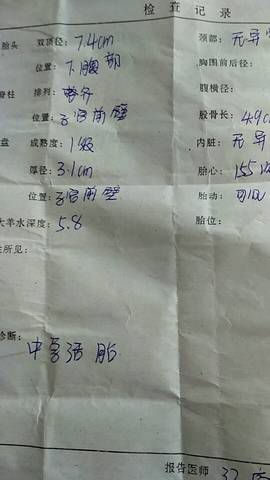 检查记录
胎头 双顶径: 7.4cm 颈部: 无异
位置: 下腹部 胸围前后径:
脊柱 排列: 整齐 腹横径:
位置: 子宫前壁 股骨长: 4.9c
盘 成熟度: 1级 内脏: 无异
厚径: 3.1cm 胎心: 155
位置: 子宫前壁 胎动: 可见
大羊水深度: 5.8 胎位:
所见:
诊断:
中 活胎
报告医师